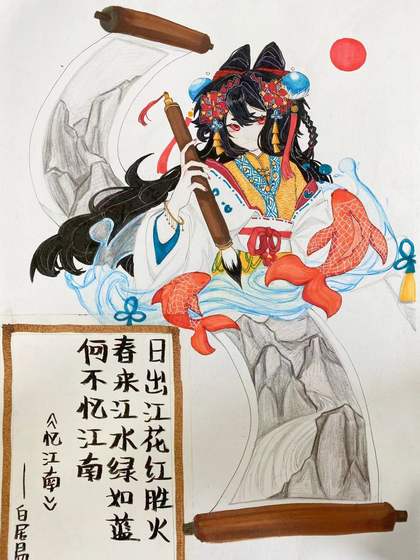 日出江花红胜火
春来江水绿如蓝
何不忆江南
《忆江南》
——白居易